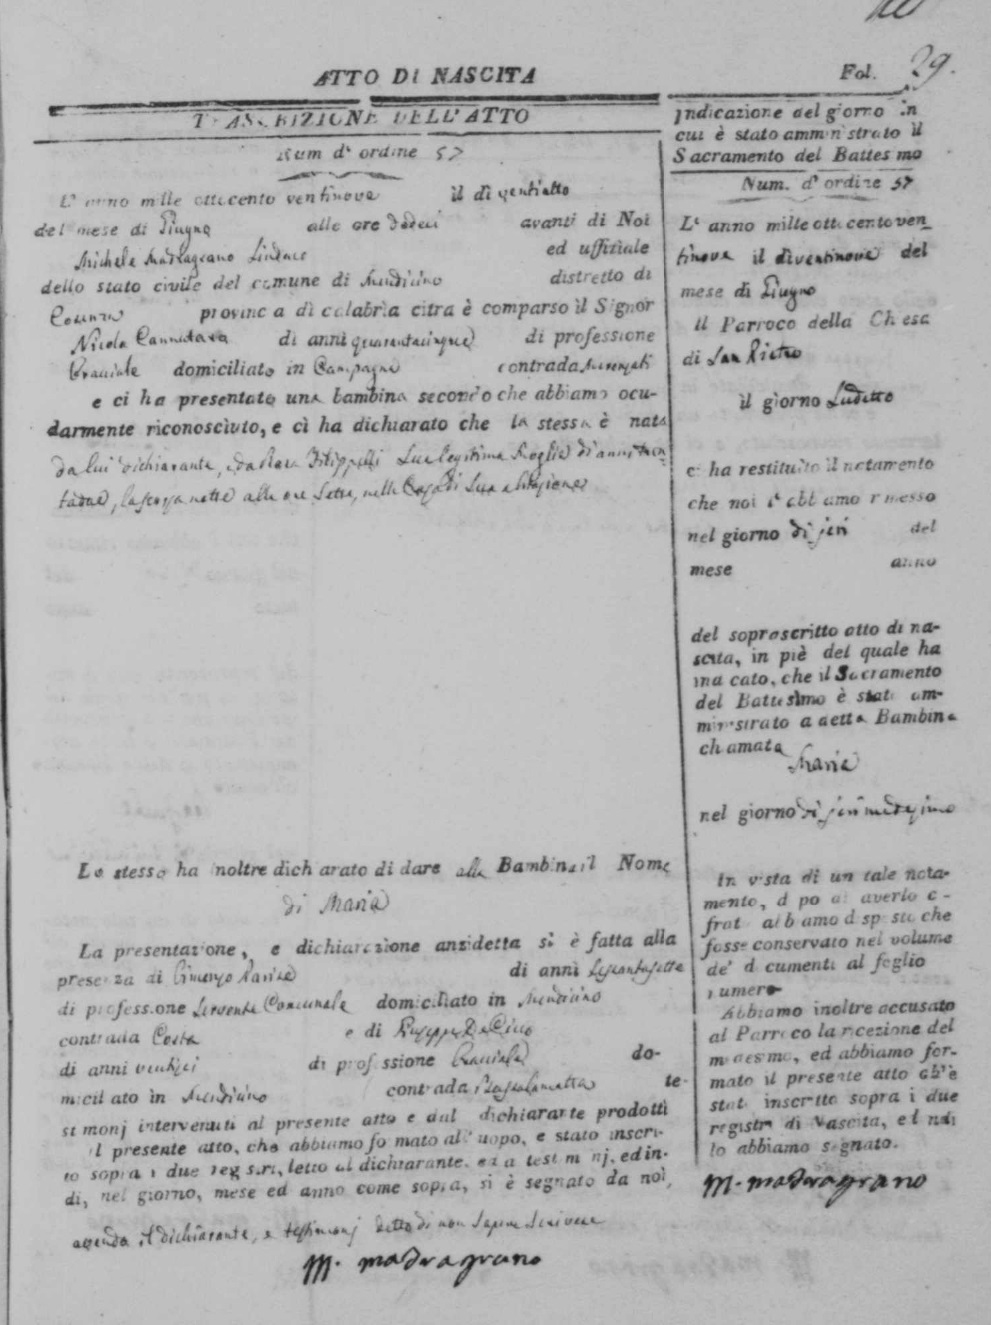 ATTO DI NASCITA
Fol. 29.
TRASCRIZIONE DELL'ATTO
Num d'ordine 57
L'anno mille ottecento ventinove il dì ventiotto
del mese di Giugno alle ore dodeci avanti di Noi
Michele Madragrano Sindaco ed uffitiale
dello stato civile del comune di Mendicino distretto di
Cosenza provincia di calabria citra è comparso il Signor
Nicola Cannatara di anni quarantacinque di professione
Bracciale domiciliato in Campagna contrada
e ci ha presentato una bambina secondo che abbiamo ocu-
darmente riconosciuto, e cì ha dichiarato che la stessa è nata
da lui dichiarante, e da Rosa Filippelli Sua legitima Moglie di anni tren-
tadue, la scorsa notte alle ore Sette, nella Casa di Sua abitazione
Lo stesso ha inoltre dicharato di dare alla Bambina il Nome
di Maria
La presentazione, e dichiarazione anzidetta sì è fatta alla
presenza di di anni Sessantasette
di professione Servente Comunale domiciliato in Mendicino
contrada Costa e di Giuseppe De Cicco
di anni ventisei di professione Bracciale do-
miciliato in Mendicino contrada te-
stimonj intervenuti al presente atto e dal dichiarante prodotti
il presente atto, che abbiamo formato all'uopo, e stato inscri-
to sopra i due registri, letto al dichiarante, ed a testimonj, ed in-
di, nel giorno, mese ed anno come sopra, sì è segnato da noì,
avendo il dichiarante, e testimonj detto di non Sapere Scrivere
M. madragrano
Indicazione del giorno in
cui è stato amministrato il
Sacramento del Battesimo
Num. d'ordine 57
L'anno mille otto cento ven-
tinove il dì ventinove del
mese di Giugno
il Parroco della Chiesa
di San Pietro
il giorno Suddetto
ci ha restituito il notamento
che noi l'abbiamo rimesso
nel giorno di jeri del
mese anno
del soprascritto atto di na-
scita, in piè del quale ha
indicato, che il Sacramento
del Battesimo è stato am-
ministrato a detta Bambina
chiamata
Maria
nel giorno di jeri medesimo
In vista di un tale nota-
mento, dopo di averlo ci-
frato abbiamo disposto che
fosse conservato nel volume
de' documenti al foglio
numero
Abbiamo inoltre accusato
al Parroco la ricezione del
medesimo, ed abbiamo for-
mato il presente atto ch'è
stato inscritto sopra i due
registri di Nascita, ed indi
lo abbiamo segnato.
M. madragrano